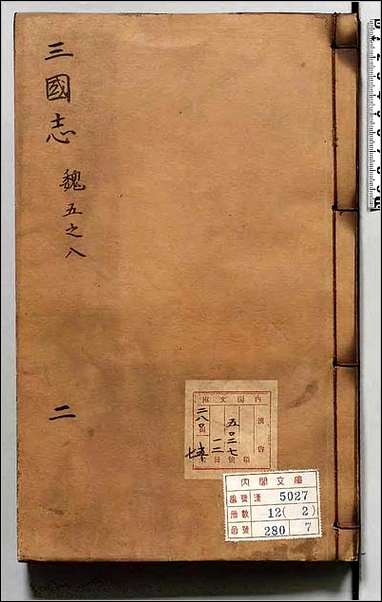 三國志
魏五之八
二
內閣文庫
漢書
五〇二七
一二
二八〇
七
內閣文庫
番號 漢 5027
冊數 12(2)
函號 280 7